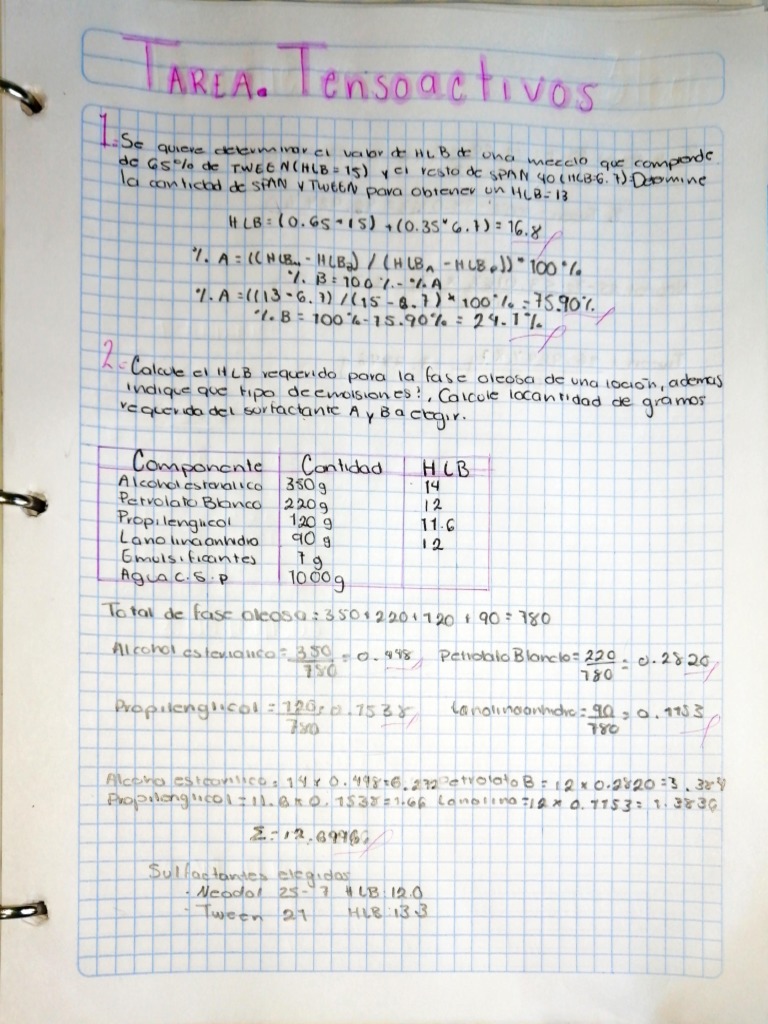 TAREA. Tensoactivos
1.- Se quiere determinar el valor de HLB de una mezcla que comprende
de 65% de TWEEN (HLB=15) y el resto de SPAN 40 (HLB 6.7) Determine
la cantidad de SPAN y TWEEN para obtener un HLB=13
HLB = (0.65*15) + (0.35*6.7) = 16.8
% A = ((HLB - HLB) / (HLB - HLB)) * 100%
% B = 100% - % A
% A = ((13 - 6.7) / (15 - 6.7) * 100% = 75.90%
% B = 100% - 75.90% = 24.1%
2.- Calcule el HLB requerido para la fase oleosa de una loción, ademas
indique que tipo de emulsiones?, Calcule la cantidad de gramos
requerida del surfactante A y B a elegir.
Componente Cantidad HLB
Alcohol estearilico 350g 14
Petrolato Blanco 220g 12
Propilenglicol 120g 11.6
Lanolina anhidro 90g 12
Emulsificantes 7g
Agua C.S.P 1000g
Total de fase oleosa = 350 + 220 + 120 + 90 = 780
Alcohol estearilico = 350/780 = 0.448 Petrolato Blanco = 220/780 = 0.2820
Propilenglicol = 120/780 = 0.1538 Lanolina anhidro = 90/780 = 0.1153
Alcohol estearilico = 14 x 0.448 = 6.272 Petrolato B = 12 x 0.2820 = 3.384
Propilenglicol = 11.6 x 0.1538 = 1.66 Lanolina = 12 x 0.1153 = 1.3836
Σ = 12.6996
Sulfactantes elegidos
· Neodol 25-7 HLB: 12.0
· Tween 21 HLB: 13.3